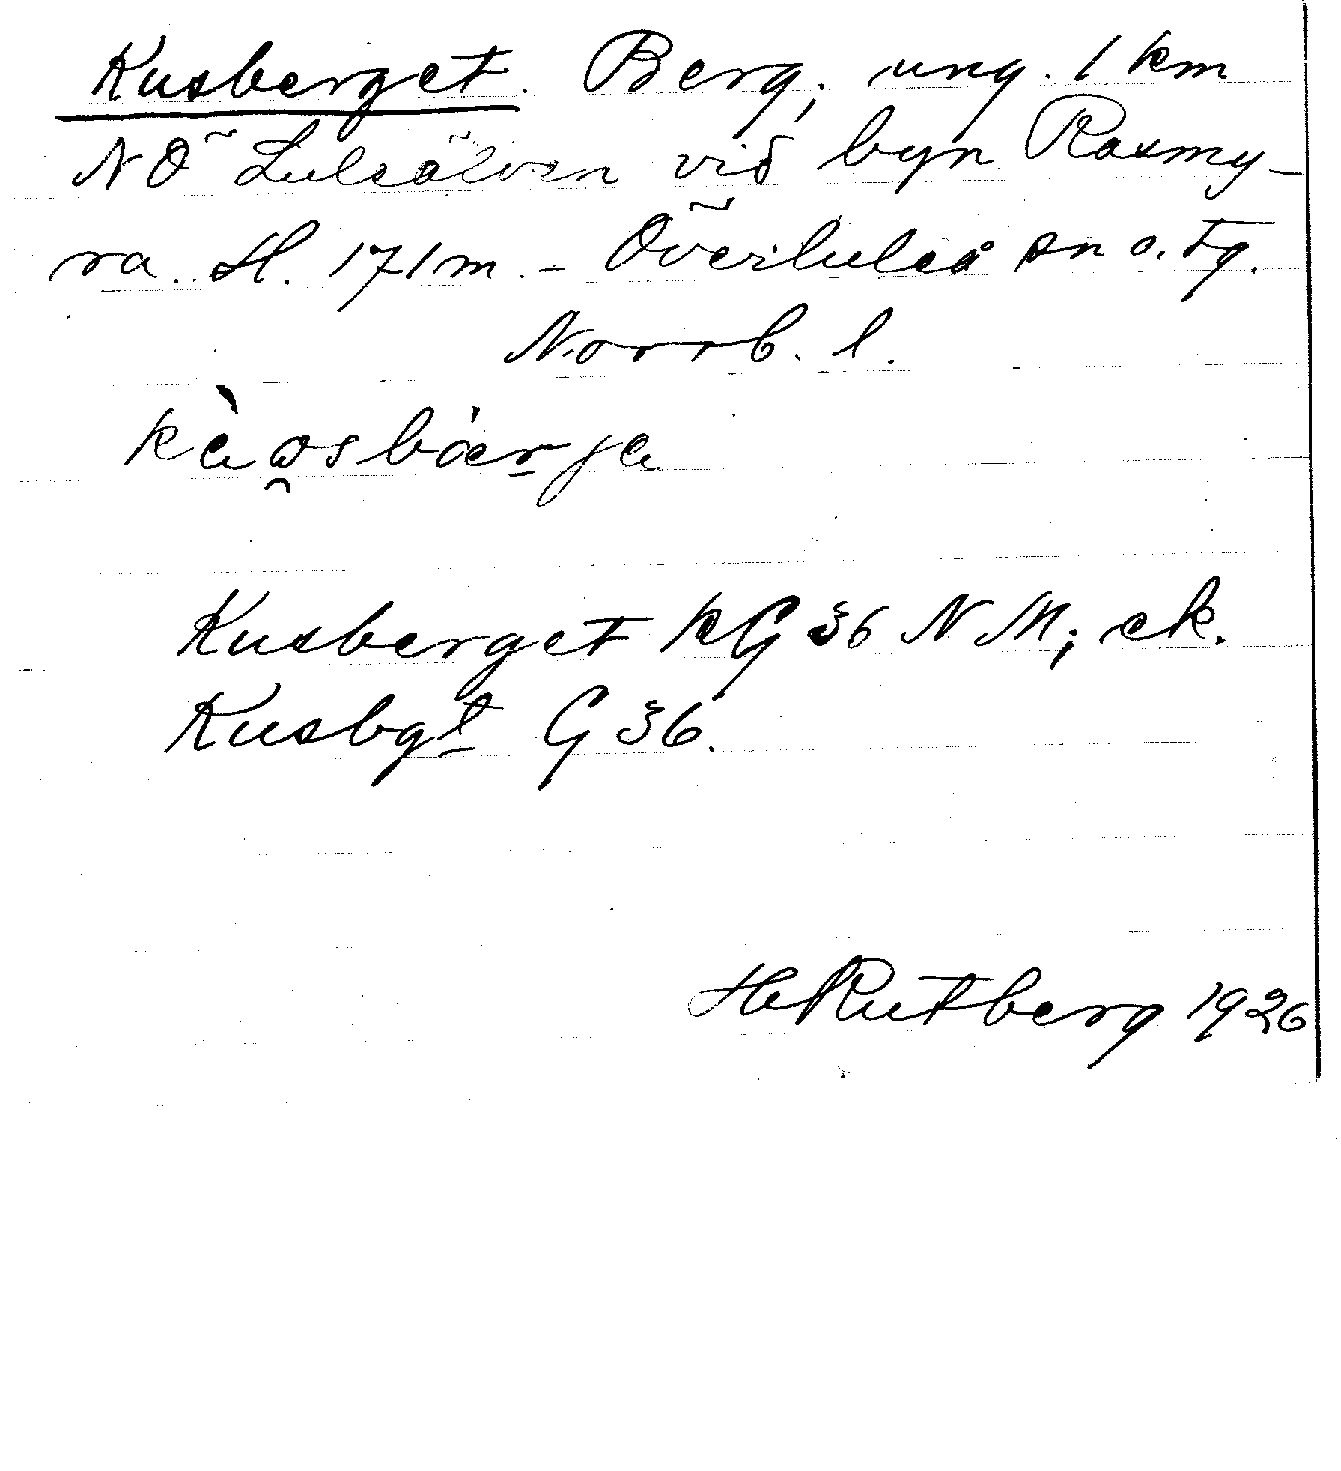 Kusberget. Berg, ung. 1 km
NÖ Luleälven vid byn Rasmy-
ra. H. 171 m. - Överluleå sn o. tg.
Norrb. l.
Kusberget KG 36 NM; ek.
Kusbgt G 36.
H Rutberg 1926